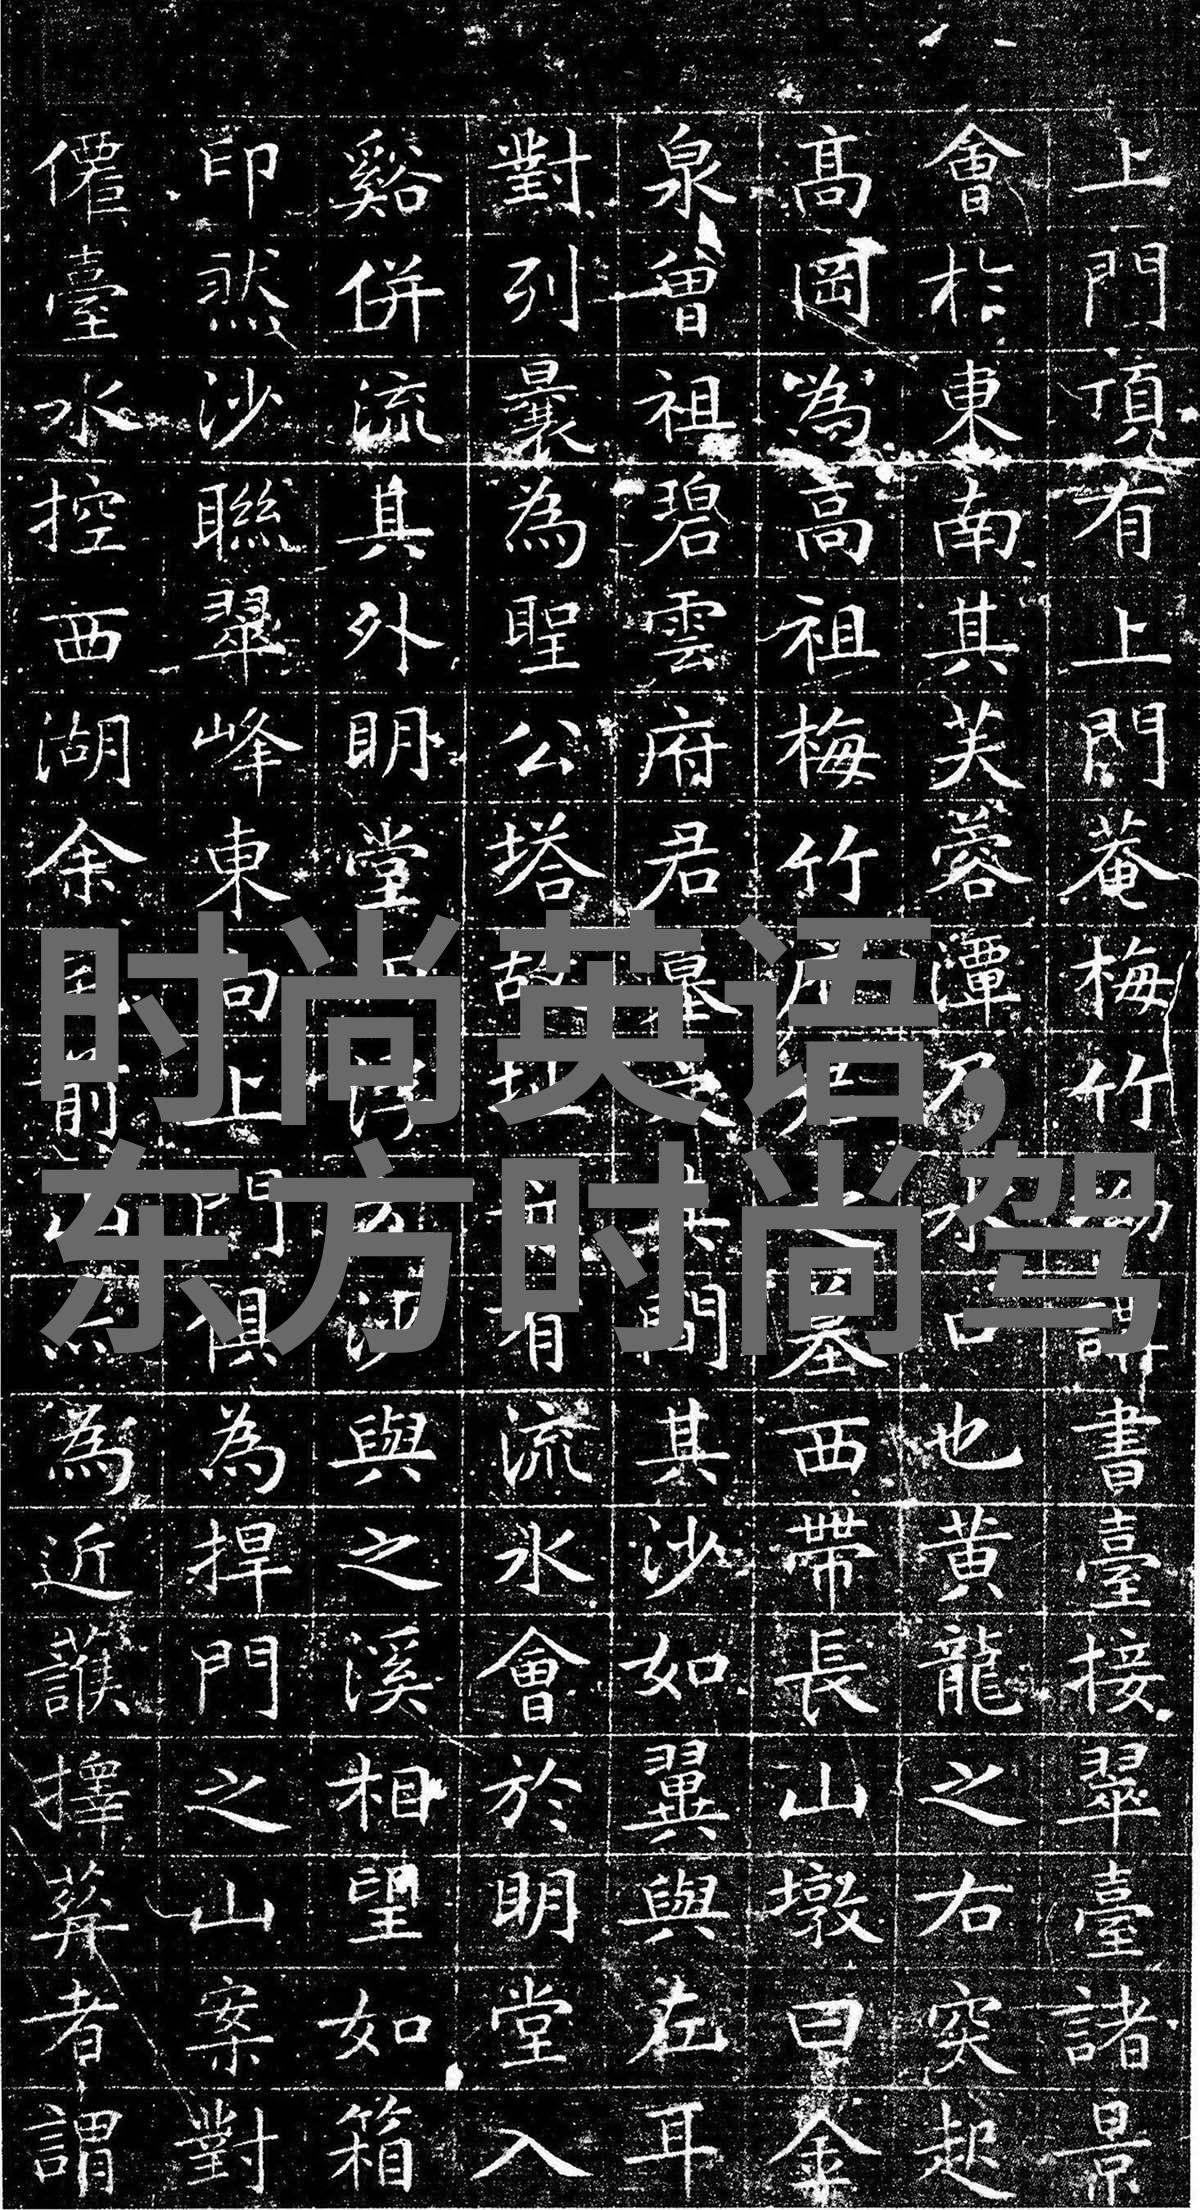 上門頂有上門菴梅竹講書臺接翠臺諸景
會於東南其芙蓉潭乃水口也黃龍之右突起
高岡為高祖梅竹府君之墓西帶長山墩曰金
泉曾祖碧雲府君墓其間其沙如翼與左耳
對列曩為聖公塔故址有流水會於明堂入
谿併流其外明堂沙與之溪相望如箱
印然沙聯翠峰東向上門俱為捍門之山案對
僊臺水控西湖余前為近護擇葬者謂
时尚英语,
东方时尚驾